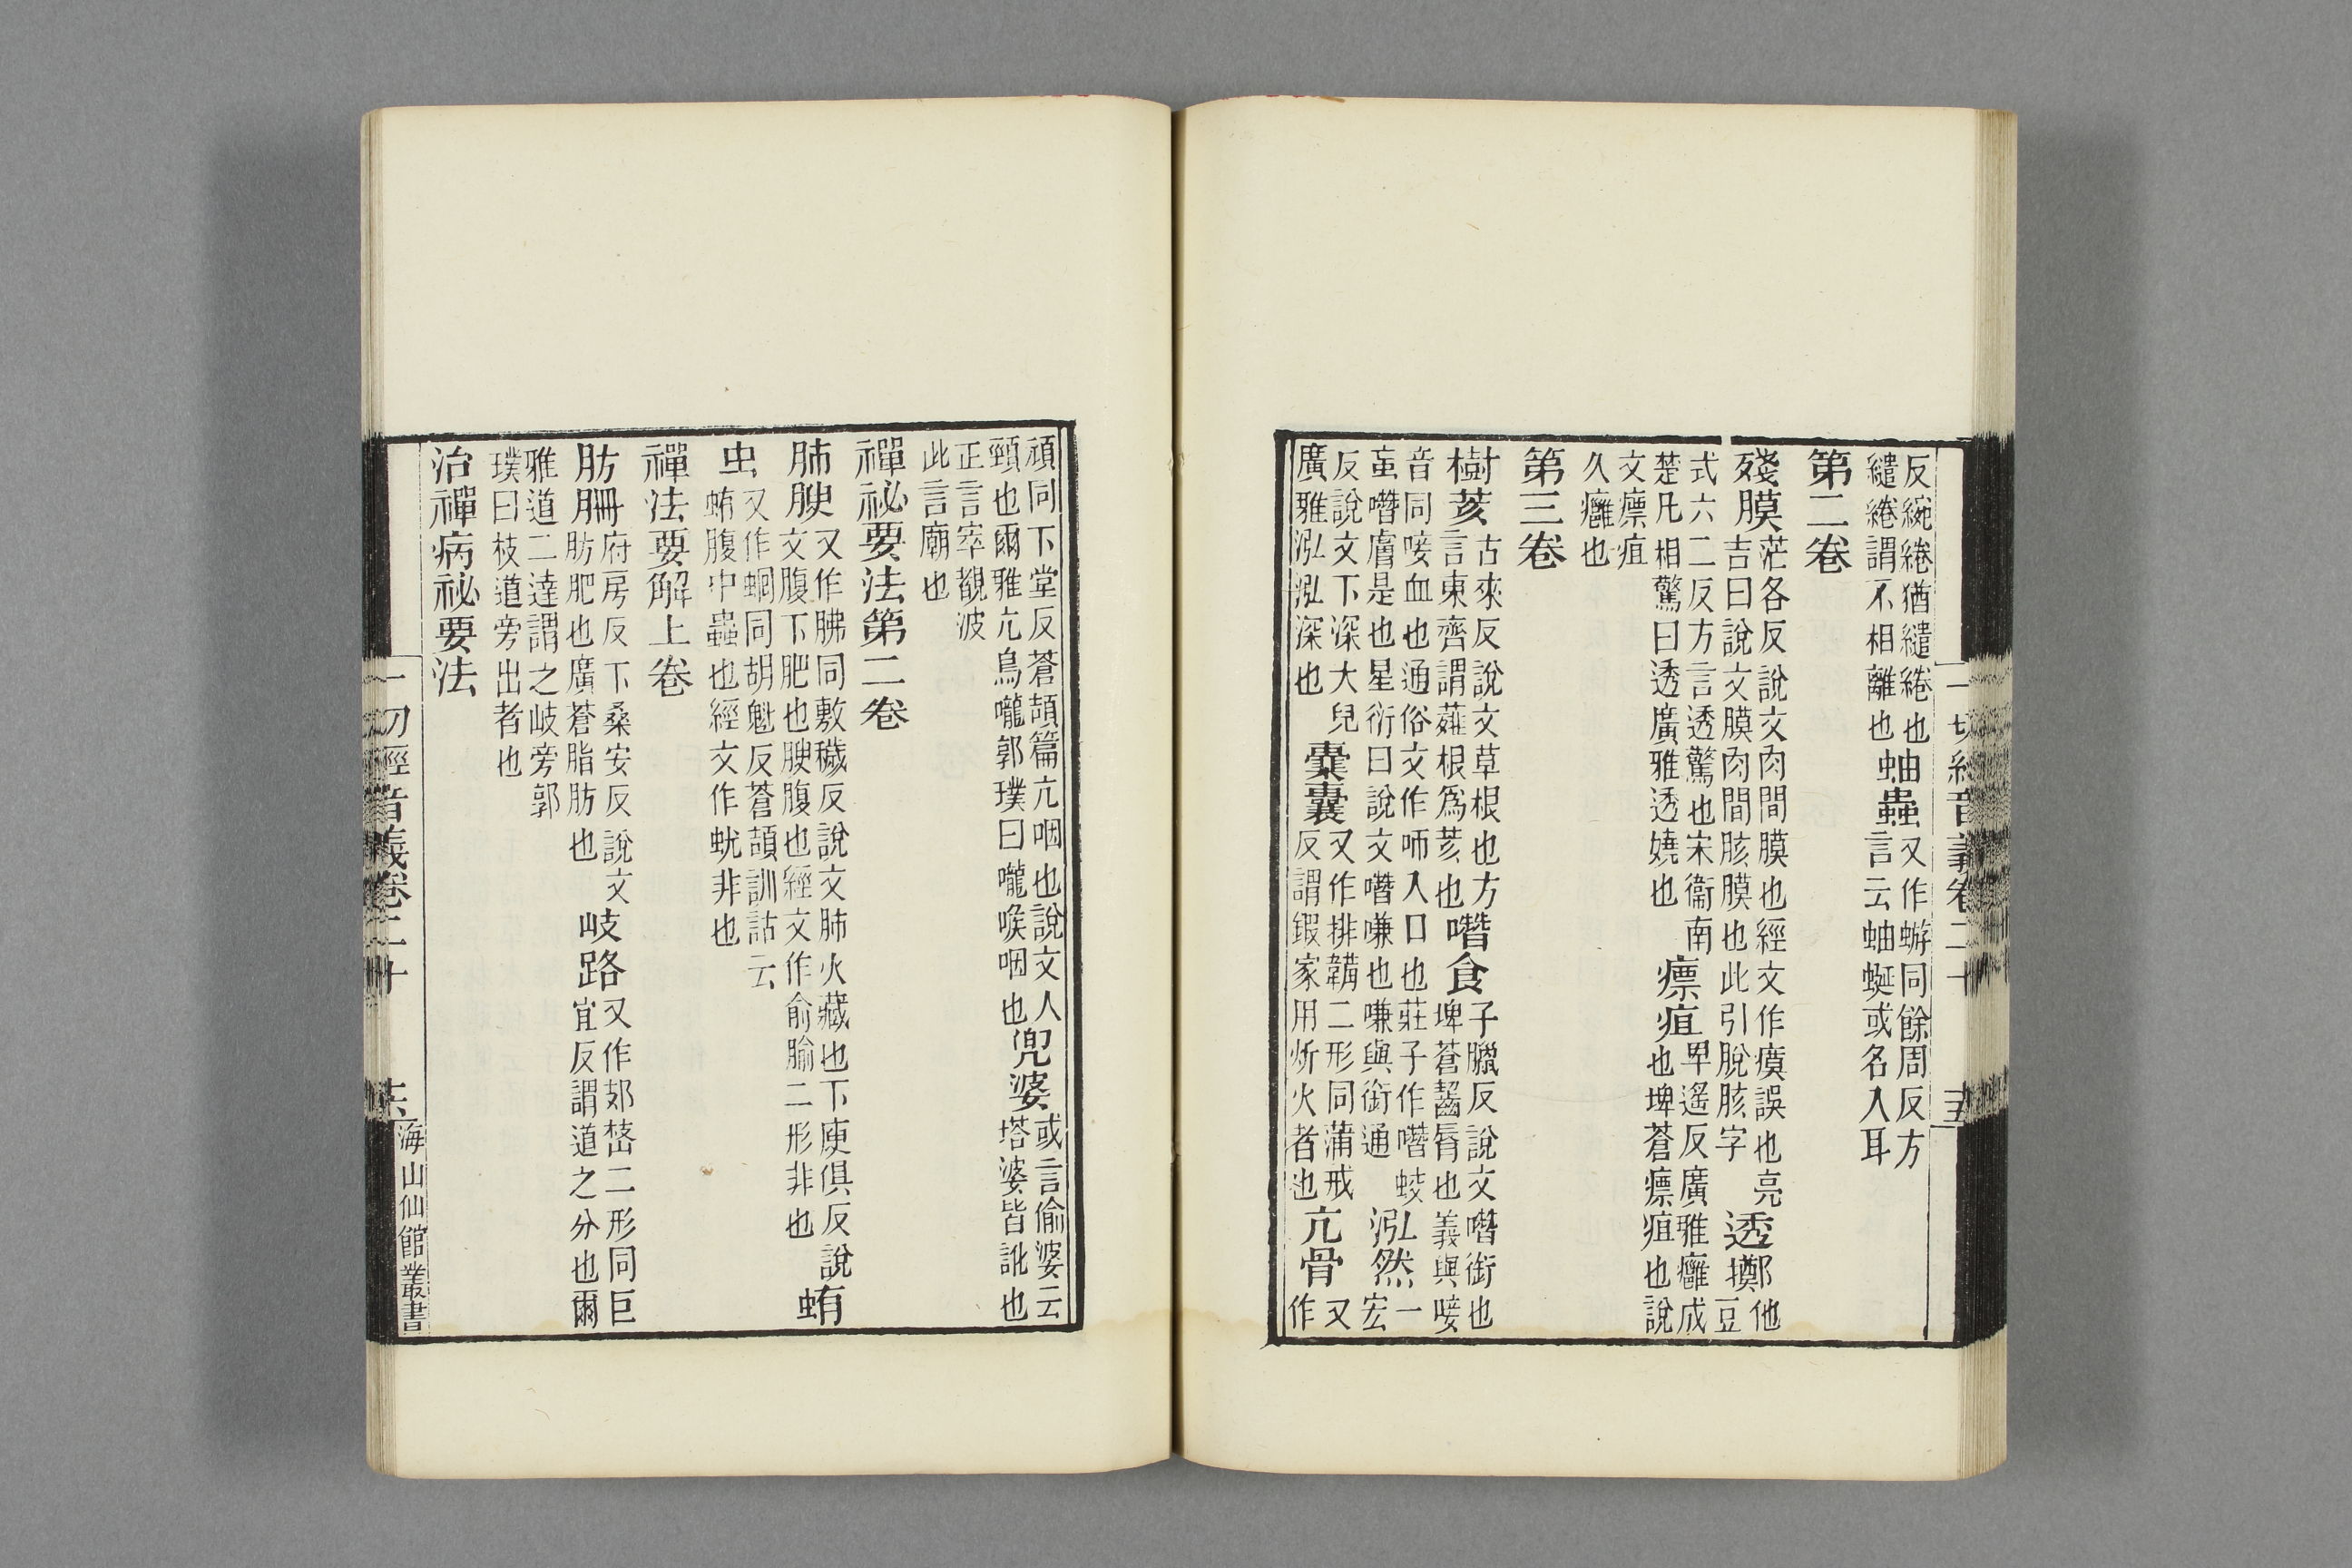 一切經音義卷二十 十五
反綩綣猶繾綣也
繾綣謂不相離也
蚰蟲
又作蝣同餘周反方
言云蚰蜒或名入耳
第二卷
殘膜
茫各反說文肉間膜也經文作瘼誤也亮
吉曰說文膜肉間胲膜也此引脫胲字
透擲
他
豆
式六二反方言透驚也宋衞南
楚凡相驚曰透廣雅透嬈也
瘭疽
卑遙反廣雅癰成
也埤蒼瘭疽也說
文瘭疽
久癰也
第三卷
樹荄
古來反說文草根也方
言東齊謂薤根爲荄也
噆食
子臘反說文噆銜也
埤蒼齧脣也義與唼
音同唼血也通俗文作咂入口也莊子作噆蛟
䖟噆膚是也星衍曰說文噆嗛也嗛與銜通
泓然
一
宏
反說文下深大皃
廣雅泓泓深也
橐囊
又作排韛二形同蒲戒
反謂鍛家用炘火者也
亢骨
又
作
頏同下堂反蒼頡篇亢咽也說文人
頸也爾雅亢鳥嚨郭璞曰嚨喉咽也
兜婆
或言偷婆云
塔婆皆訛也
正言窣覩波
此言廟也
禪祕要法第二卷
肺腴
又作胇同敷穢反說文肺火藏也下庾俱反說
文腹下肥也腴腹也經文作俞腧二形非也
蛕
虫
又作蛔同胡魁反蒼頡訓詁云
蛕腹中蟲也經文作蚘非也
禪法要解上卷
肪
府房反下桑安反說文
肪肥也廣蒼脂肪也
岐路
又作二形同巨
宜反謂道之分也爾
雅道二達謂之岐旁郭
璞曰枝道旁出者也
治禪病祕要法
一切經音義卷二十 十六 海山仙館叢書